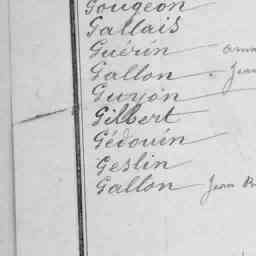 Gougeon
Gallais
Guérin
Gallon Jean
Guyon
Gilbert
Gédouin
Geslin
Gallon Jean